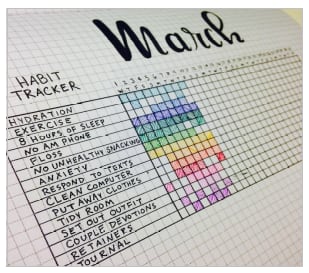 March
HABIT
TRACKER
HYDRATION
EXERCISE
8 HOURS OF SLEEP
NO AM PHONE
FLOSS
NO UNHEALTHY SNACKING
ANXIETY
RESPOND TO TEXTS
CLEAN COMPUTER
PUT AWAY CLOTHES
TIDY ROOM
SET OUT OUTFIT
COUPLE DEVOTIONS
RETAINERS
JOURNAL